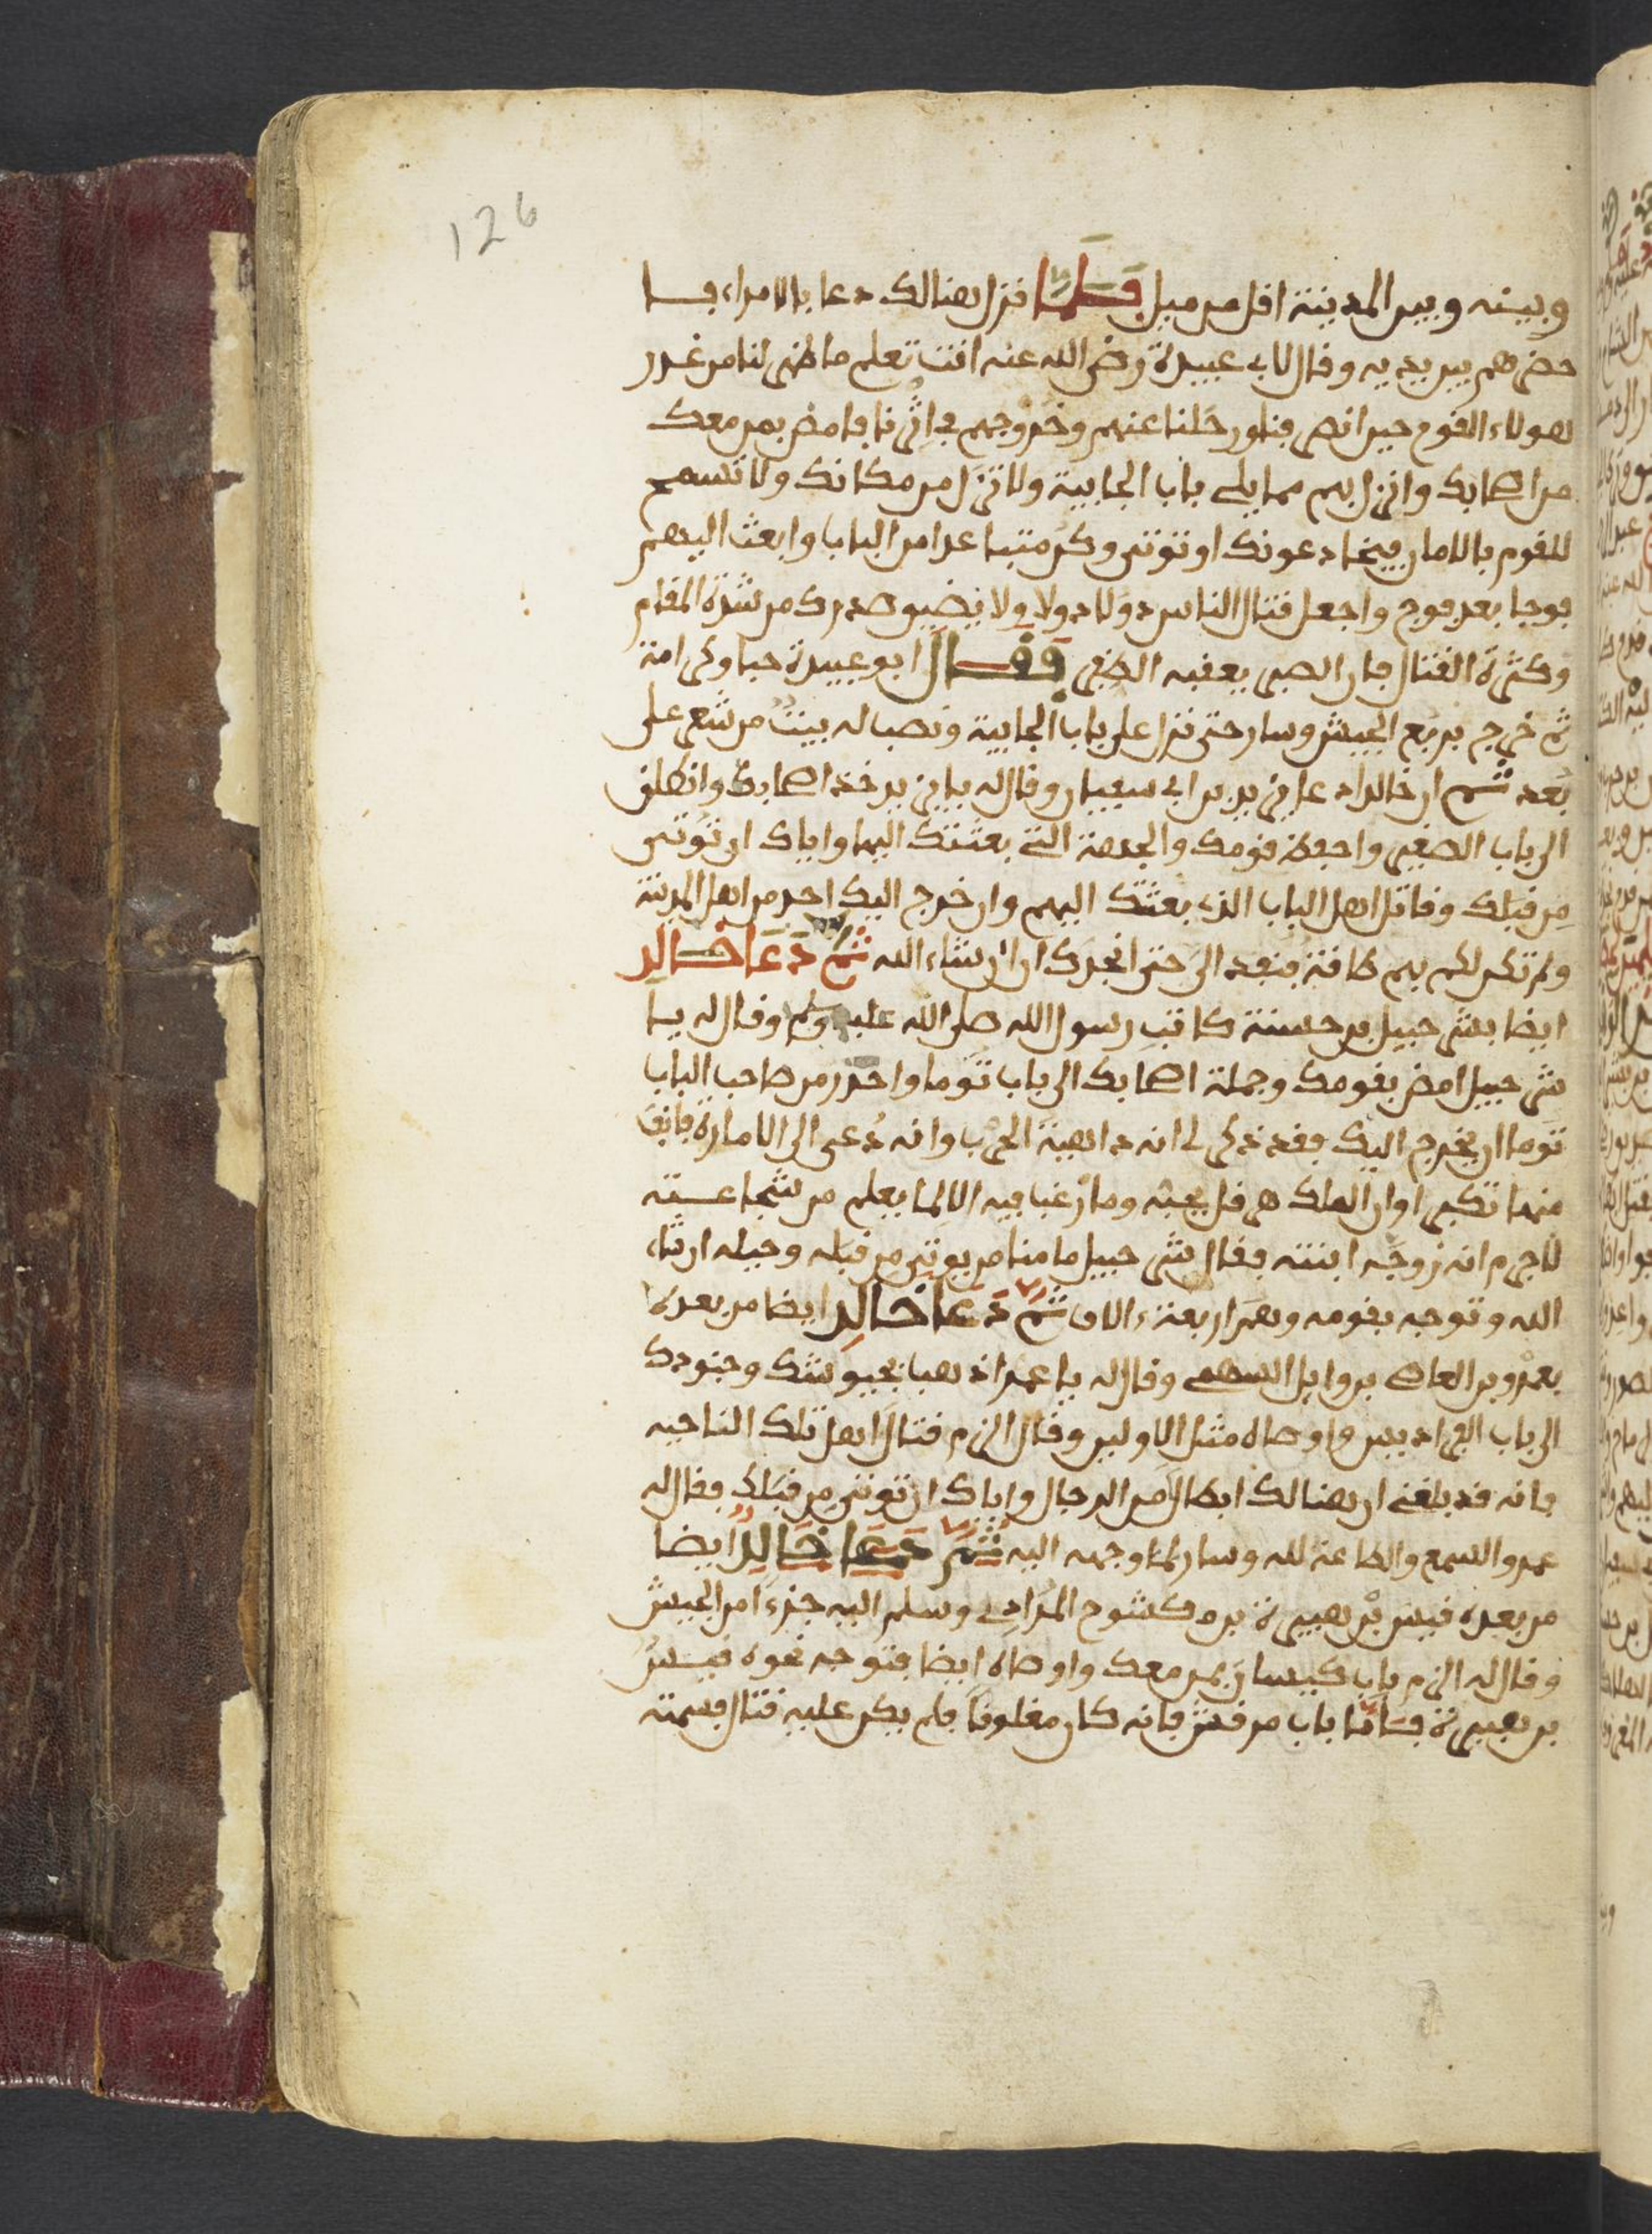 126
وبينه وبين المدينة اقل من ميل فلما نزل هنالك دعا بالامراء فا
حضرهم بين يديه وقال لابي عبيدة رضي الله عنه انت تعلم ما ظهر لنا من غدر
هولاء القوم حين انصرفنا ورحلنا عنهم وخروجهم في اثرنا فامض بمن معك
من اصحابك وانزل بهم مما يلي باب الجابية ولا تزل من مكانك ولا تسمح
للقوم بالامان فيخادعونك او توتى وكن متباعدا من الباب وابعث اليهم
فوجا بعد فوج واجعل قتال الناس دولا دولا ولا يضيق صدرك من شدة المقام
وكثرة القتال فان الصبر يعقبه الظفر فقال ابو عبيدة حبا وكرامة
ثم خرج بربع الجيش وسار حتى نزل على باب الجابية ونصب له بيت من شعر على
بعد ثم ان خالدا دعا يزيد بن ابي سفيان وقال له يا يزيد خذ اصحابك وانطلق
الى باب الصغير واحفظ قومك والجهة التي بعثتك اليها واياك ان توتى
من قبلك وقاتل اهل الباب الذي بعثتك اليهم وان خرج اليك احد من اهل المدينة
ولم تكن لكم بهم طاقة فنفد الي حتى انجدك ان شاء الله ثم دعا خالد
ايضا بشرحبيل بن حسنة كاتب رسول الله صلى الله عليه وسلم وقال له يا
شرحبيل امض بقومك وجملة اصحابك الى باب توما واحذر من صاحب الباب
توما ان يخرج اليك فقد ذكر لي انه داهية الحرب وانه دعي الى الامارة فانف
منها تكبرا وان الملك هرقل يحبه وما رغبا فيه الا لما يعلم من شجاعته
لا جرم انه زوجه ابنته فقال شرحبيل ما منا من يوتى من قبله وحيله ان شاء
الله وتوجه بقومه وهم اربعة ءالاف ثم دعا خالد ايضا من بعده
بعمرو بن العاص بن وايل السهمي وقال له يا عمرو اذهب بجيوشك وجنودك
الى باب الفراديس واوصاه مثل الاولين وقال الزم قتال اهل تلك الناحيه
فانه قد بلغني ان هنالك ابطالا من الرجال واياك ان توتى من قبلك فقال له
عمرو السمع والطاعة لله وسار لما وجهه اليه ثم دعا خالد ايضا
من بعده قيس بن هبيرة بن مكشوح المرادي وسلم اليه جزءا من الجيش
وقال له الزم باب كيسان بمن معك واوصاه ايضا فتوجه نحوه قيس
بن هبيرة فاما باب مرقش فانه كان مغلوقا فلم يكن عليه قتال فسمته